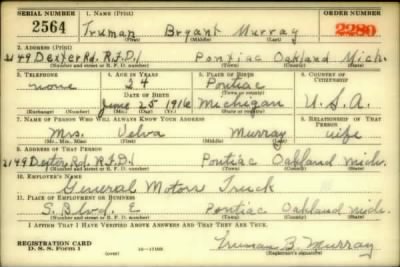 SERIAL NUMBER 1. NAME (Print) ORDER NUMBER
2564 Truman Bryant Murray 2280
(First) (Middle) (Last)
2. ADDRESS (Print)
2149 Dexter Rd. R.F.D.1 Pontiac Oakland Mich.
(Number and street or R. F. D. number) (Town) (County) (State)
3. TELEPHONE 4. AGE IN YEARS 5. PLACE OF BIRTH 6. COUNTRY OF CITIZENSHIP
none 24 Pontiac
DATE OF BIRTH (Town or county)
June 25 1916 Michigan U.S.A.
(Exchange) (Number) (Mo.) (Day) (Yr.) (State or country)
7. NAME OF PERSON WHO WILL ALWAYS KNOW YOUR ADDRESS 8. RELATIONSHIP OF THAT PERSON
Mrs. Velva Murray wife
(Mr., Mrs., Miss) (First) (Middle) (Last)
9. ADDRESS OF THAT PERSON
2149 Dexter Rd. R.F.D.1 Pontiac Oakland Mich.
(Number and street or R. F. D. number) (Town) (County) (State)
10. EMPLOYER'S NAME
General Motors Truck
11. PLACE OF EMPLOYMENT OR BUSINESS
S. Blvd. E Pontiac Oakland Mich.
(Number and street or R. F. D. number) (Town) (County) (State)
I AFFIRM THAT I HAVE VERIFIED ABOVE ANSWERS AND THAT THEY ARE TRUE.
REGISTRATION CARD Truman B. Murray
D. S. S. Form 1 (over) (Registrant's signature)